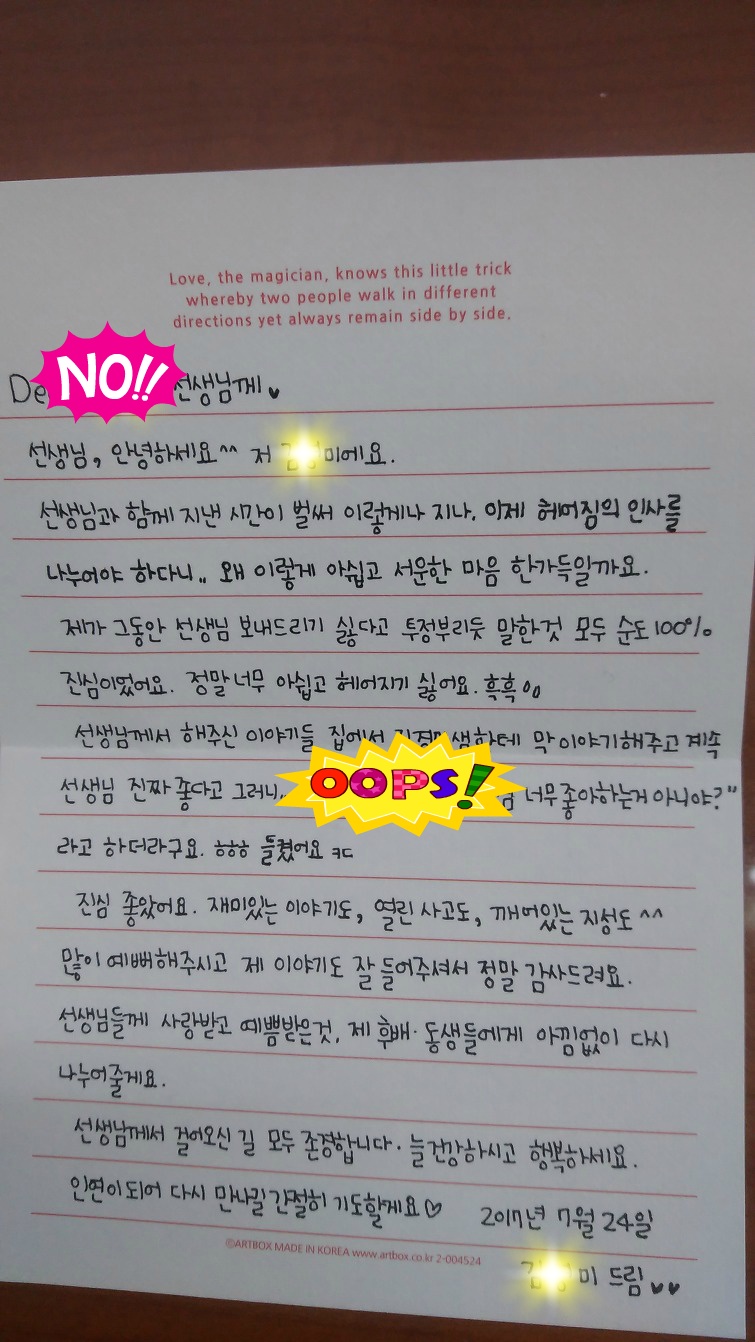 Love, the magician, knows this little trick
whereby two people walk in different
directions yet always remain side by side.
NO!! 선생님께♥
선생님, 안녕하세요^^ 저 미에요.
선생님과 함께 지낸 시간이 벌써 이렇게나 지나. 이제 헤어짐의 인사를
나누어야 하다니.. 왜 이렇게 아쉽고 서운한 마음 한가득일까요.
제가 그동안 선생님 보내드리기 싫다고 투정부리듯 말한것 모두 순도 100%
진심이었어요. 정말 너무 아쉽고 헤어지기 싫어요. 흑흑
선생님께서 해주신 이야기들 집에서 막 이야기해주고 계속
선생님 진짜 좋다고 그러니.. OOPS! 너무 좋아하는거 아니야?"
라고 하더라구요. ㅎㅎㅎ 들켰어요 ㅋㄷ
진심 좋았어요. 재미있는 이야기도, 열린 사고도, 깨어있는 지성도 ^^
많이 예뻐해주시고 제 이야기도 잘 들어주셔서 정말 감사드려요.
선생님들께 사랑받고 예쁨받은것, 제 후배·동생들에게 아낌없이 다시
나누어줄게요.
선생님께서 걸어오신 길 모두 존경합니다. 늘 건강하시고 행복하세요.
인연이 되어 다시 만나길 간절히 기도할게요♡ 2017년 7월 24일
ⒸARTBOX MADE IN KOREA www.artbox.co.kr 2-004524
미 드림 ♥♥